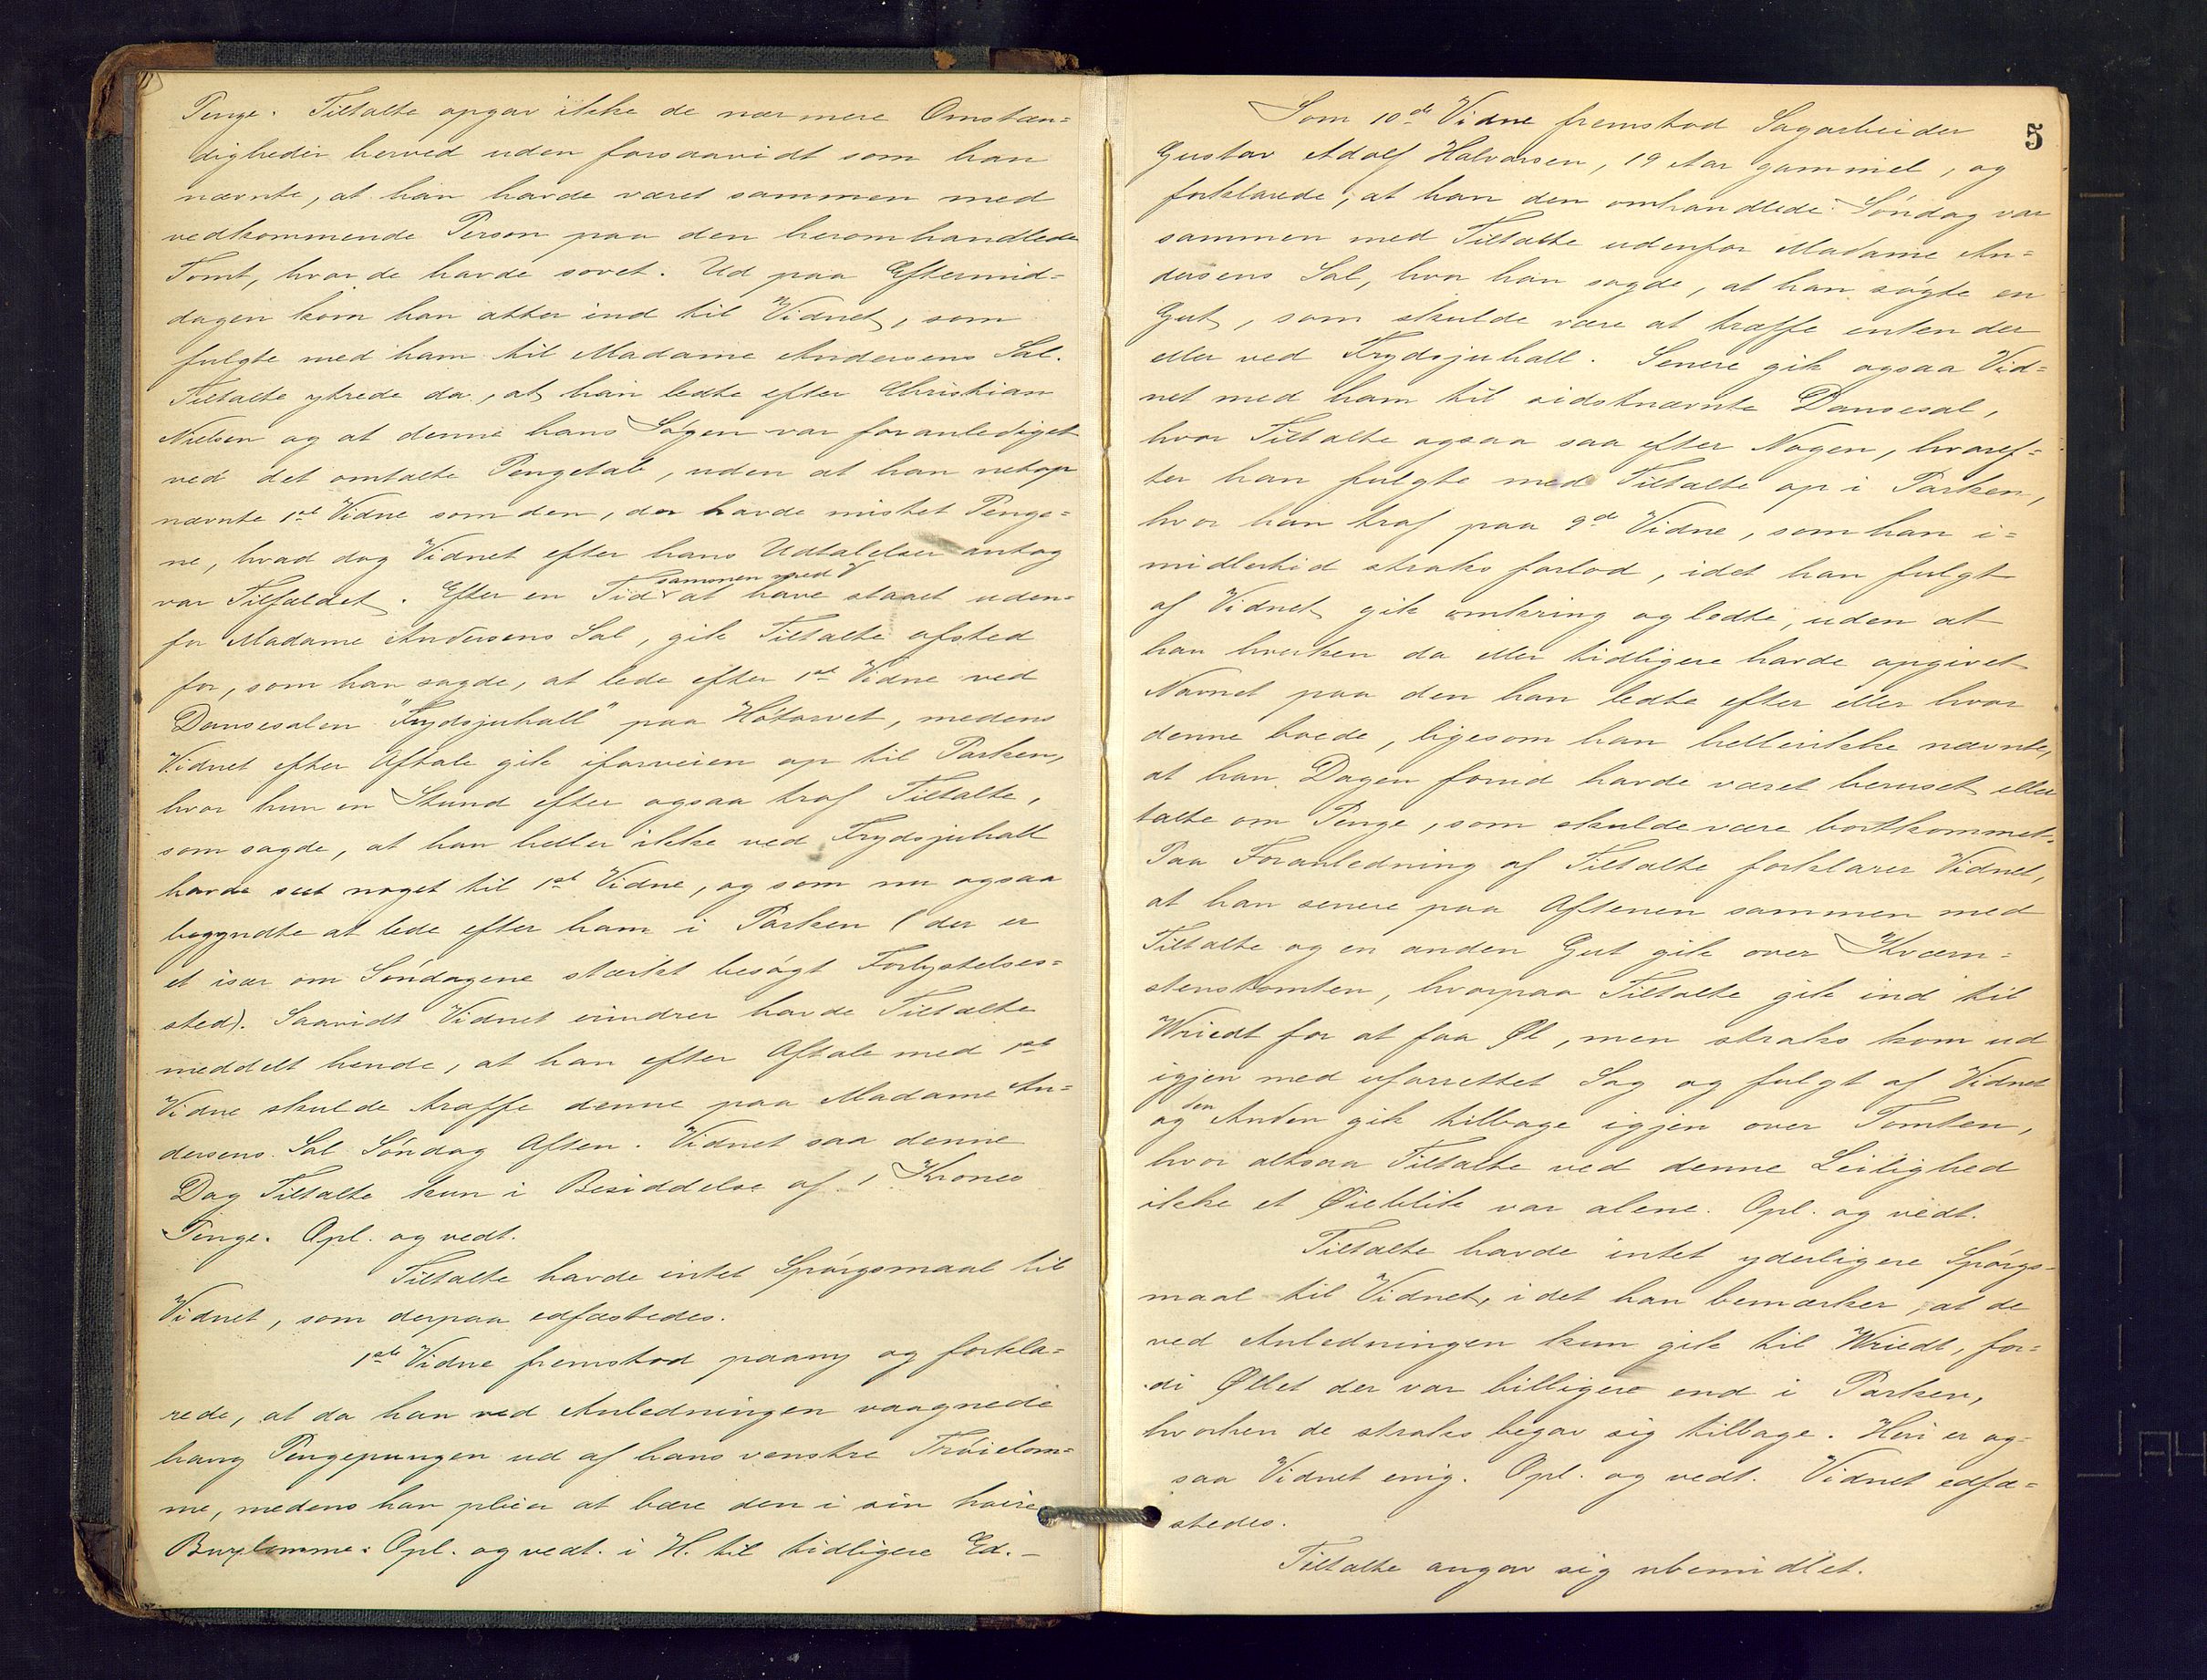 Penge. Tiltalte opgav ikke de nærmere Omstæn=
digheder herved uden forsaavidt som han
nævnte, at han havde været sammen med
vedkommende Person paa den heromhandlede
Tomt, hvor de havde sovet. Ud paa Eftermid=
dagen kom han atter ind til Vidnet, som
fulgte med ham til Madame Andersens Sal.
Tiltalte ytrede da, at han ledte efter Christian
Nielsen og at denne hans Søgen var foranlediget
ved det omtalte Pengetab, uden at han netop
nævnte 1ste Vidne som den, der havde mistet Penge=
ne, hvad dog Vidnet efter hans Udtalelser antog
var Tilfældet. Efter en Tid sammen med V at have staaet uden=
for Madame Andersens Sal, gik Tiltalte afsted
for, som han sagde, at lede efter 1ste Vidne ved
Dansesalen "Frydsjuhall" paa Høtorvet, medens
Vidnet efter Aftale gik iforveien op til Parken,
hvor hun en Stund efter ogsaa traf Tiltalte,
som sagde, at han heller ikke ved Frydsjuhall
havde seet noget til 1ste Vidne, og som nu ogsaa
begyndte at lede efter ham i Parken (der er
et især om Søndagene stærkt besøgt Forlystelses=
sted). Saavidt Vidnet erindrer havde Tiltalte
meddelt hende, at han efter Aftale med 1ste
Vidne skulde træffe denne paa Madame An=
dersens Sal Søndag Aften. Vidnet saa denne
Dag Tiltalte kun i Besiddelse af 1 Krones
Penge. Opl. og vedt.
Tiltalte havde intet Spørgsmaal til
Vidnet, som derpaa edfæstedes.
1ste Vidne fremstod paany og forkla=
rede, at da han ved Anledningen vaagnede
hang Pengepungen ud af hans venstre Trøielom=
me, medens han pleier at bære den i sin høire
Buxelomme. Opl. og vedt. i H. til tidligere Ed.-
5
Som 10de Vidne fremstod Sagarbeider
Gustav Adolf Halvorsen, 19 Aar gammel, og
forklarede, at han den omhandlede Søndag var
sammen med Tiltalte udenfor Madame An=
dersens Sal, hvor han sagde, at han søgte en
Gut, som skulde være at træffe enten der
eller ved Frydsjuhall. Senere gik ogsaa Vid=
net med ham til sidstnævnte Dansesal,
hvor Tiltalte ogsaa saa efter Nogen, hvoref=
ter han fulgte med Tiltalte op i Parken,
hvor han traf paa 9de Vidne, som han i=
midlertid straks forlod, idet han fulgt
af Vidnet gik omkring og ledte, uden at
han hverken da eller tidligere havde opgivet
Navnet paa den han ledte efter eller hvor
denne boede, ligesom han hellerikke nævnte,
at han Dagen forud havde været beruset eller
talte om Penge, som skulde være bortkommet.
Paa Foranledning af Tiltalte forklarer Vidnet,
at han senere paa Aftenen sammen med
Tiltalte og en anden Gut gik over Kværn=
stenstomten, hvorpaa Tiltalte gik ind til
Wriedt for at faa Øl, men straks kom ud
igjen med uforrettet Sag og fulgt af Vidnet
og den Anden gik tilbage igjen over Tomten,
hvor altsaa Tiltalte ved denne Leilighed
ikke et Øieblik var alene. Opl. og vedt.
Tiltalte havde intet yderligere Spørgs=
maal til Vidnet, idet han bemærker, at de
ved Anledningen kun gik til Wriedt, for=
di Øllet der var billigere end i Parken,
hvorhen de straks begav sig tilbage. Heri er og=
saa Vidnet enig. Opl. og vedt. Vidnet edfæ=
stedes.
Tiltalte angav sig ubemidlet.